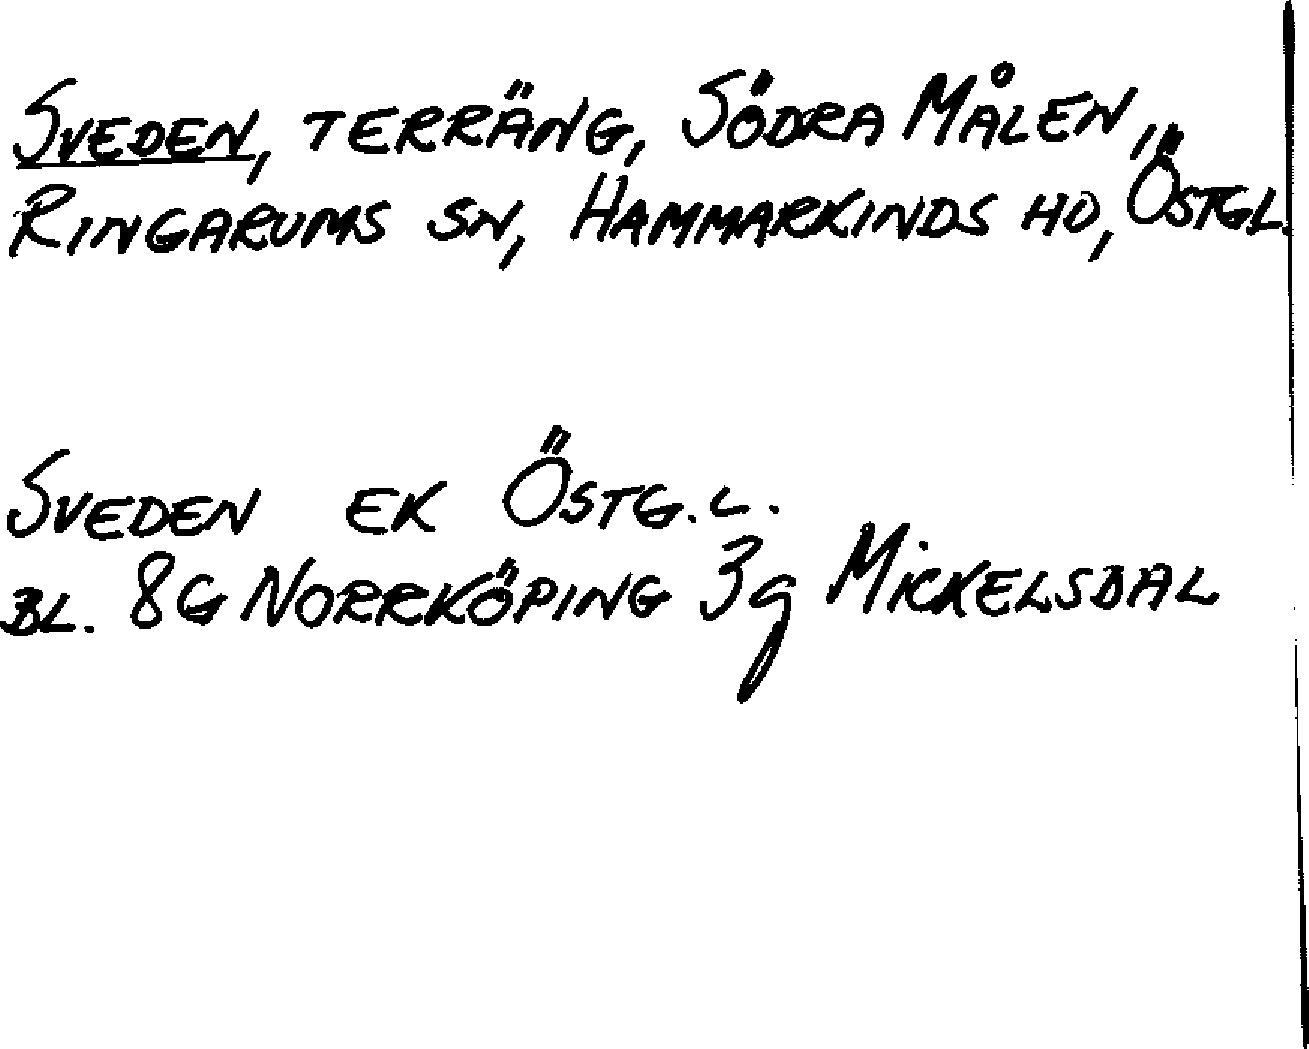 SVEDEN, TERRÄNG, SÖDRA MÅLEN,
RINGARUMS SN, HAMMARKINDS HD, ÖSTGL.
SVEDEN EK ÖSTG.L.
BL. 8G NORRKÖPING 3g MICKELSDAL